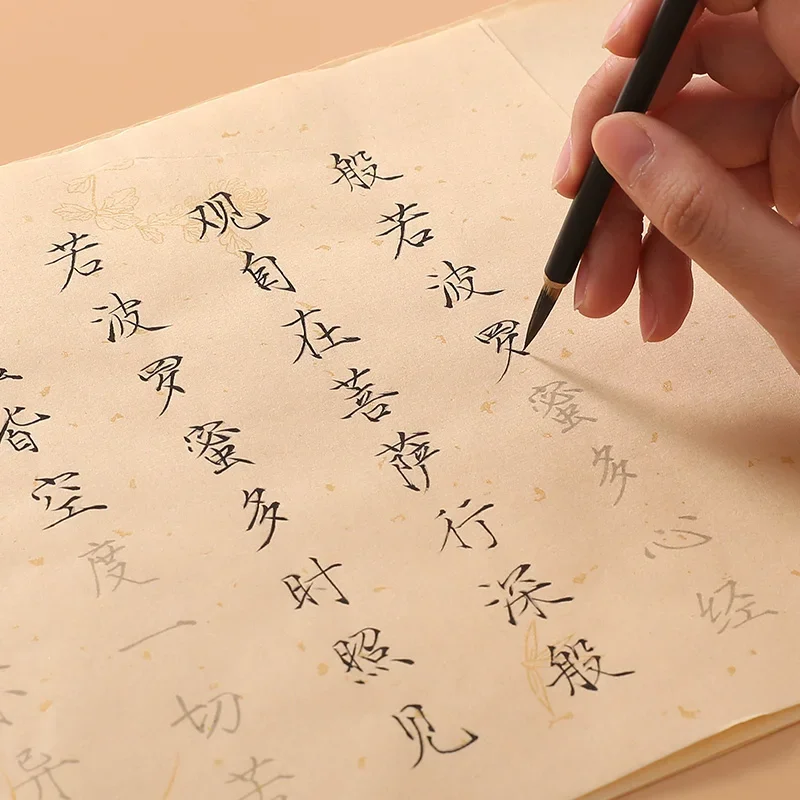 般若波罗蜜多心经
观自在菩萨行深般
若波罗蜜多时照见
皆空度一切苦
异